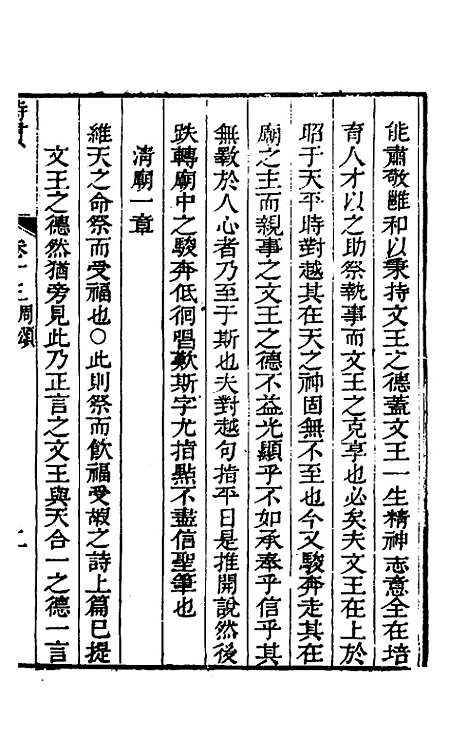 能肅敬雝和以秉持文王之德蓋文王一生精神志意全在培
育人才以之助祭執事而文王之克享也必矣夫文王在上於
昭于天平時對越其在天之神固無不至也今又駿奔走其在
廟之主而親事之文王之德不益光顯乎不如承奉乎信乎其
無斁於人心者乃至于斯也夫對越句指平日是推開說然後
跌轉廟中之駿奔低徊唱歎斯字尤指點不盡信聖筆也
清廟一章
維天之命祭而受福也○此則祭而飲福受嘏之詩上篇已提
文王之德然猶旁見此乃正言之文王與天合一之德一言
詩貫
卷十三周頌